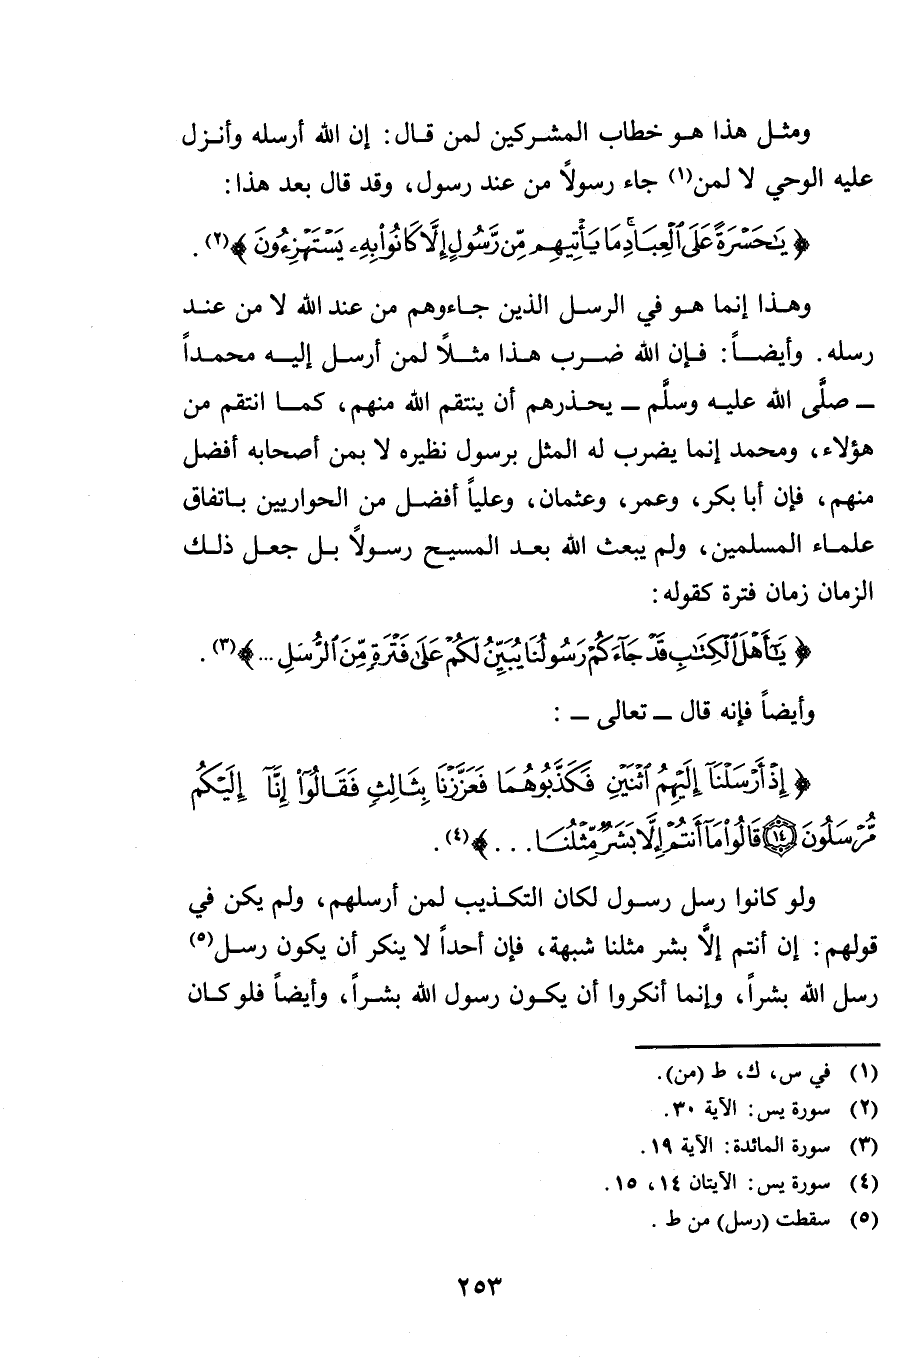 ومثـل هذا هـو خطاب المشـركين لمن قـال: إن الله أرسله وأنـزل
عليه الوحي لا لمن(١) جاء رسولاً من عند رسول، وقد قال بعد هذا:
﴿ يَٰحَسْرَةً عَلَى ٱلْعِبَادِ مَا يَأْتِيهِم مِّن رَّسُولٍ إِلَّا كَانُوا۟ بِهِۦ يَسْتَهْزِءُونَ ﴾(٢) .
وهـذا إنما هـو في الرسـل الذين جـاءوهم من عند الله لا من عنـد
رسله. وأيضـاً: فـإن الله ضـرب هـذا مثـلاً لمن أرسـل إليـه محمـداً
ــ صلَّى الله عليـه وسلَّم ــ يحـذرهم أن ينتقم الله منهم، كمـا انتقم من
هؤلاء، ومحمد إنما يضرب له المثل برسول نظيره لا بمن أصحابه أفضل
منهم، فإن أبا بكر، وعمر، وعثمان، وعلياً أفضـل من الحواريين بـاتفاق
علمـاء المسلمين، ولم يبعث الله بعـد المسيـح رسـولاً بـل جعـل ذلـك
الزمان زمان فترة كقوله:
﴿ يَٰٓأَهْلَ ٱلْكِتَٰبِ قَدْ جَآءَكُمْ رَسُولُنَا يُبَيِّنُ لَكُمْ عَلَىٰ فَتْرَةٍ مِّنَ ٱلرُّسُلِ ... ﴾(٣) .
وأيضاً فإنه قال ــ تعالى ــ :
﴿ إِذْ أَرْسَلْنَآ إِلَيْهِمُ ٱثْنَيْنِ فَكَذَّبُوهُمَا فَعَزَّزْنَا بِثَالِثٍ فَقَالُوٓا۟ إِنَّآ إِلَيْكُم
مُّرْسَلُونَ ١٤ قَالُوا۟ مَآ أَنتُمْ إِلَّا بَشَرٌ مِّثْلُنَا . . . ﴾(٤) .
ولو كانوا رسل رسـول لكان التكـذيب لمن أرسلهم، ولم يكن في
قولهم: إن أنتم إلَّا بشر مثلنا شبهة، فإن أحداً لا ينكر أن يكون رسـل(٥)
رسل الله بشراً، وإنما أنكروا أن يكـون رسول الله بشـراً، وأيضاً فلو كـان
(١) في س، ك، ط (من).
(٢) سورة يس: الآية ٣٠.
(٣) سورة المائدة: الآية ١٩.
(٤) سورة يس: الآيتان ١٤، ١٥.
(٥) سقطت (رسل) من ط .
٢٥٣